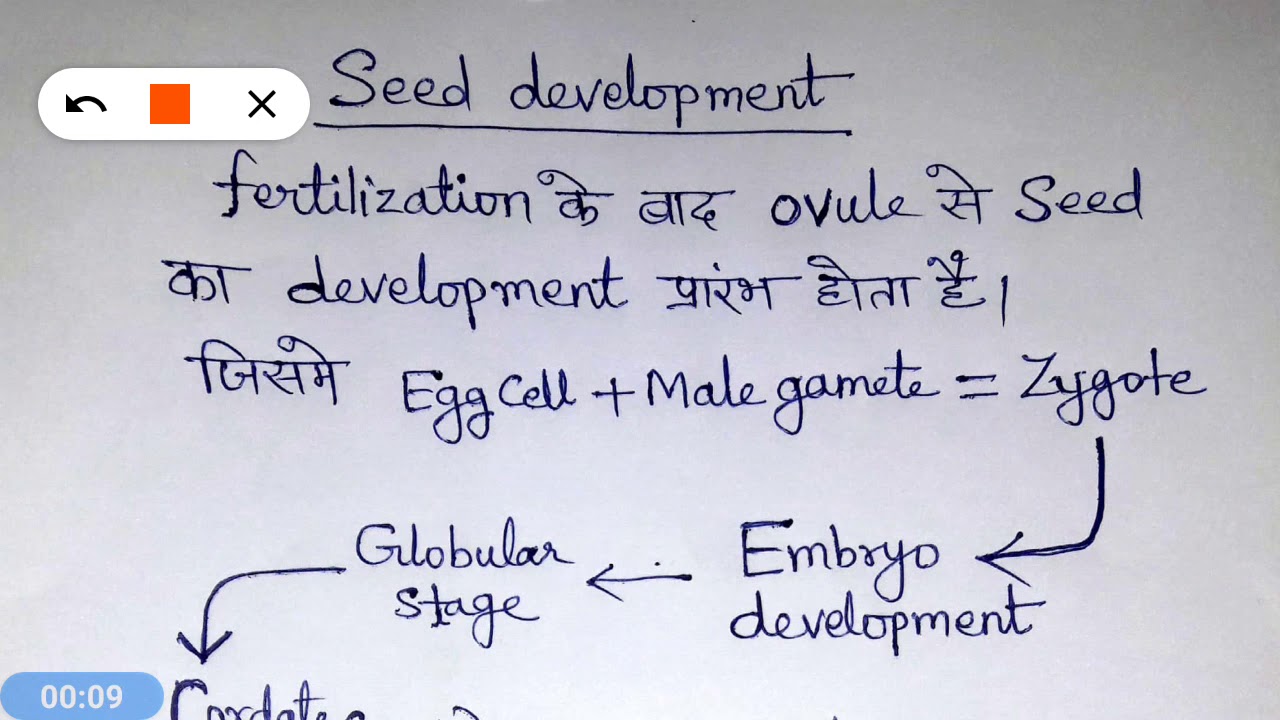 Seed development
fertilization के बाद ovule से Seed
का development प्रारंभ होता है।
जिसमे Egg Cell + Male gamete = Zygote
Embryo
development
Globular
stage
Cordate
00:09